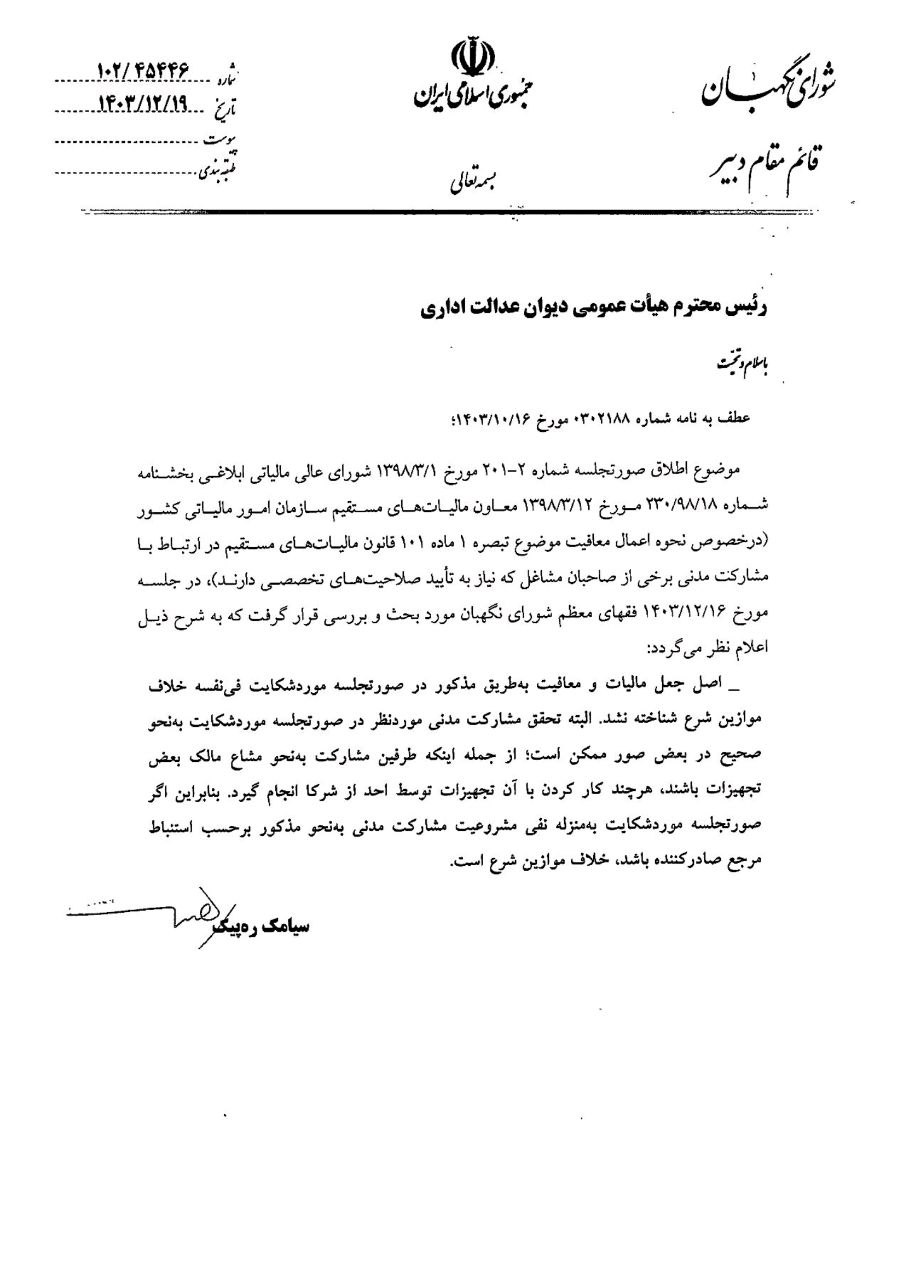 شورای نگهبان
قائم مقام دبیر
جمهوری اسلامی ایران
بسمه تعالی
شماره ۱۰۲/۴۵۴۴۶
تاریخ ۱۴۰۳/۱۲/۱۹
پیوست
طبقه بندی
رئیس محترم هیأت عمومی دیوان عدالت اداری
باسلام و تحیّت
عطف به نامه شماره ۰۳۰۲۱۸۸ مورخ ۱۴۰۳/۱۰/۱۶؛
موضوع اطلاق صورتجلسه شماره ۲-۲۰۱ مورخ ۱۳۹۸/۳/۱ شورای عالی مالیاتی ابلاغی بخشنامه
شماره ۲۳۰/۹۸/۱۸ مورخ ۱۳۹۸/۳/۱۲ معاون مالیات‌های مستقیم سازمان امور مالیاتی کشور
(درخصوص نحوه اعمال معافیت موضوع تبصره ۱ ماده ۱۰۱ قانون مالیات‌های مستقیم در ارتباط با
مشارکت مدنی برخی از صاحبان مشاغل که نیاز به تأیید صلاحیت‌های تخصصی دارند)، در جلسه
مورخ ۱۴۰۳/۱۲/۱۶ فقهای معظم شورای نگهبان مورد بحث و بررسی قرار گرفت که به شرح ذیل
اعلام نظر می‌گردد:
_ اصل جعل مالیات و معافیت به‌طریق مذکور در صورتجلسه موردشکایت فی‌نفسه خلاف
موازین شرع شناخته نشد. البته تحقق مشارکت مدنی موردنظر در صورتجلسه موردشکایت به‌نحو
صحیح در بعض صور ممکن است؛ از جمله اینکه طرفین مشارکت به‌نحو مشاع مالک بعض
تجهیزات باشند، هرچند کار کردن با آن تجهیزات توسط احد از شرکا انجام گیرد. بنابراین اگر
صورتجلسه موردشکایت به‌منزله نفی مشروعیت مشارکت مدنی به‌نحو مذکور برحسب استنباط
مرجع صادرکننده باشد، خلاف موازین شرع است.
سیامک ره‌پیک